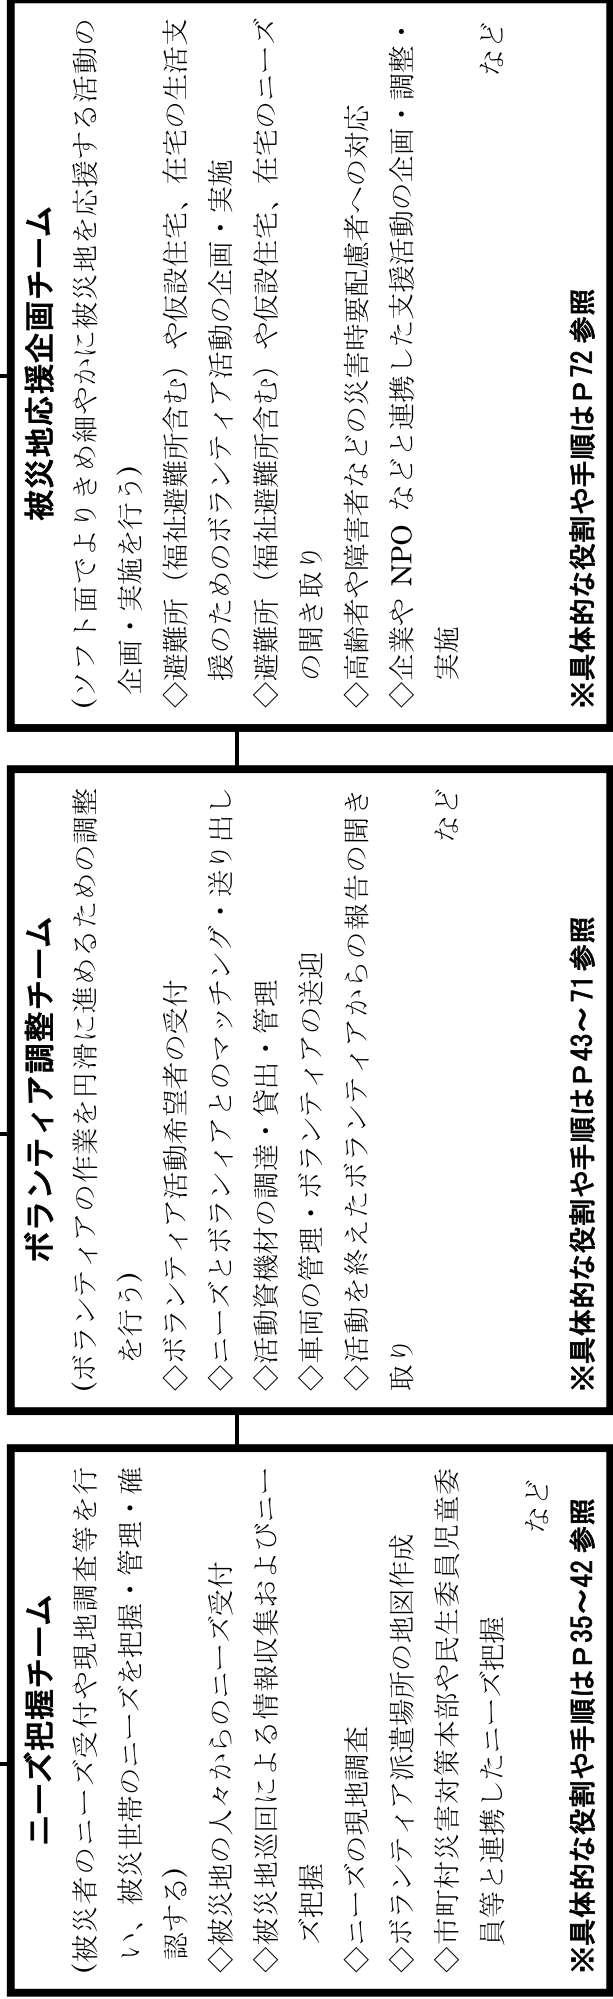 ニーズ把握チーム
(被災者のニーズ受付や現地調査等を行
い、被災世帯のニーズを把握・管理・確
認する)
◇被災地の人々からのニーズ受付
◇被災地巡回による情報収集およびニー
ズ把握
◇ニーズの現地調査
◇ボランティア派遣場所の地図作成
◇市町村災害対策本部や民生委員児童委
員等と連携したニーズ把握
など
※具体的な役割や手順はP35～42参照
ボランティア調整チーム
(ボランティアの作業を円滑に進めるための調整
を行う)
◇ボランティア活動希望者の受付
◇ニーズとボランィアとのマッチング・送り出し
◇活動資機材の調達・貸出・管理
◇車両の管理・ボランティアの送迎
◇活動を終えたボランティアからの報告の聞き
取り
など
※具体的な役割や手順はP43～71参照
被災地応援企画チーム
(ソフト面でよりきめ細やかに被災地を応援する活動の
企画・実施を行う)
◇避難所（福祉避難所含む）や仮設住宅、在宅の生活支
援のためのボランティア活動の企画・実施
◇避難所（福祉避難所含む）や仮設住宅、在宅のニーズ
の聞き取り
◇高齢者や障害者などの災害時要配慮者への対応
◇企業や NPO などと連携した支援活動の企画・調整・
実施
など
※具体的な役割や手順はP72参照